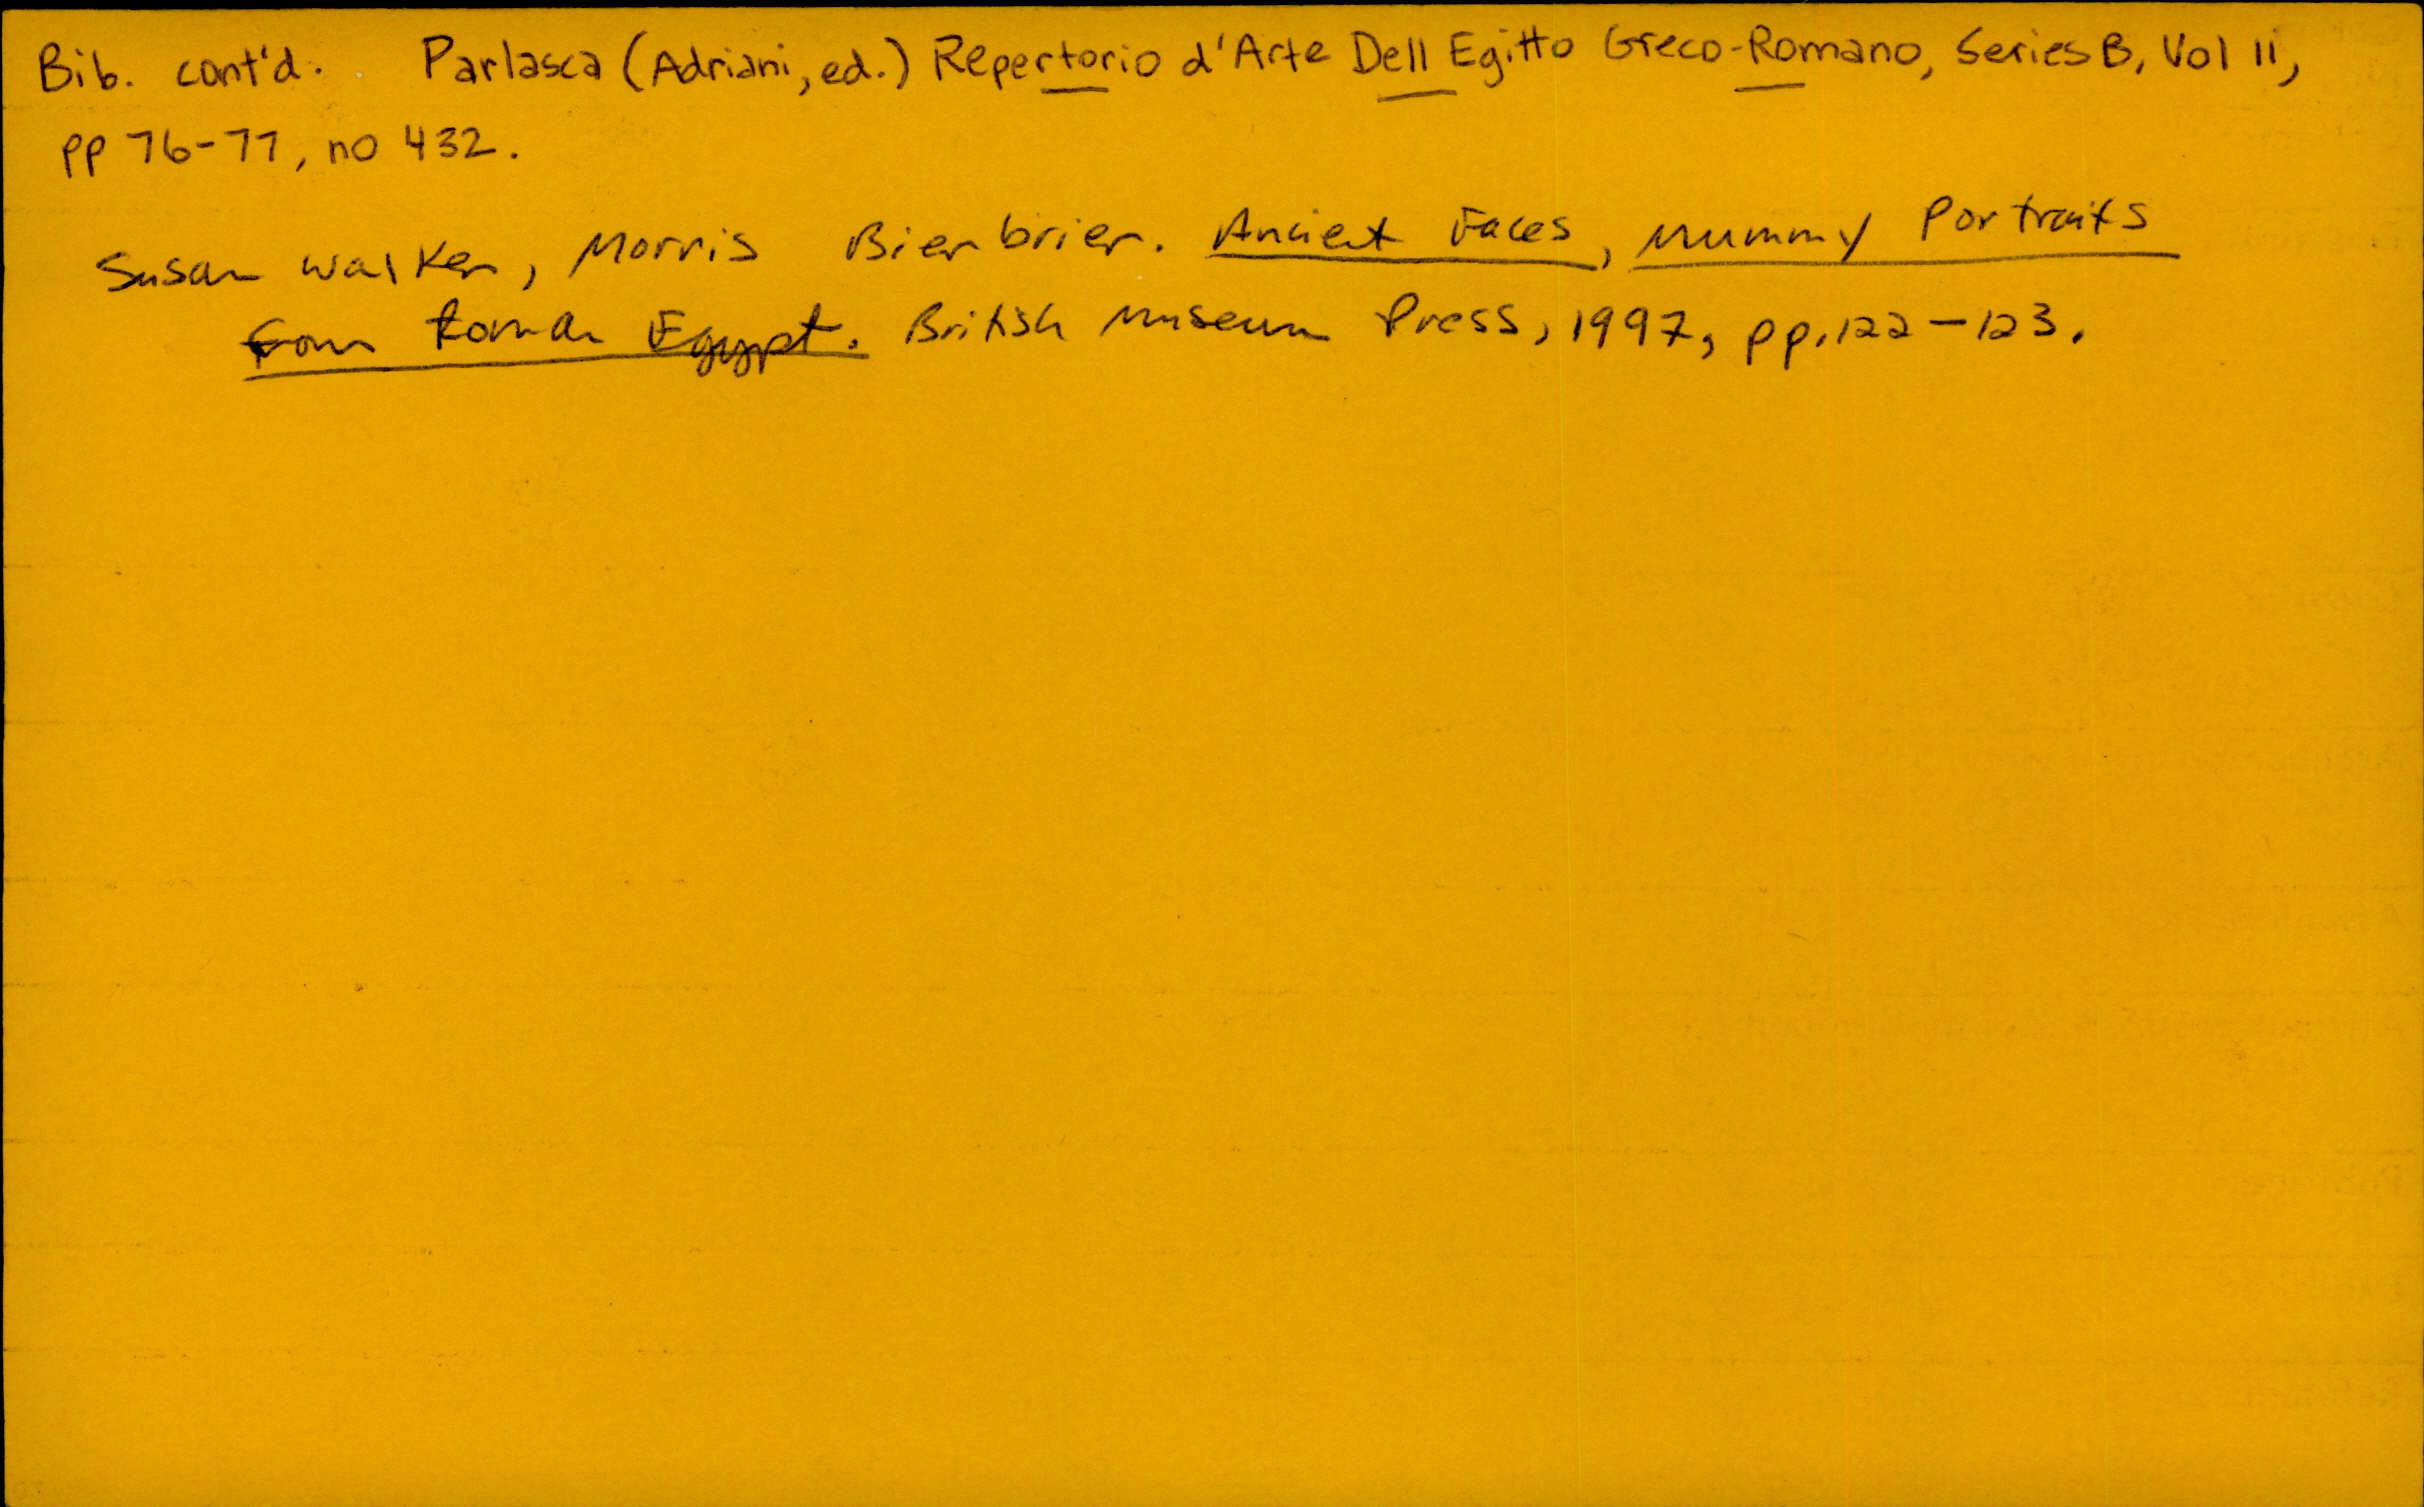 Bib. cont'd. Parlasca (Adriani, ed.) Repertorio d'Arte Dell Egitto Greco-Romano, Series B, Vol II,
pp 76-77, no 432.
Susan Walker, Morris Bierbrier. Ancient Faces, Mummy Portraits
from Roman Egypt. British Museum Press, 1997, pp. 122-123.